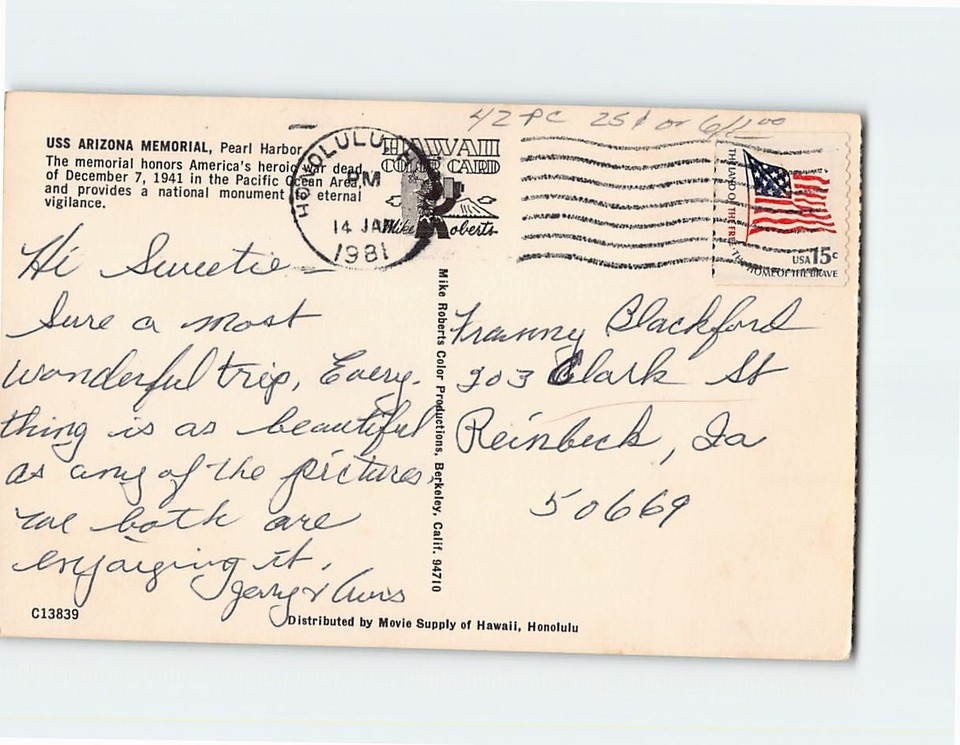 42 PC 25¢ or 6/1.00
USS ARIZONA MEMORIAL, Pearl Harbor
The memorial honors America's heroic war dead
of December 7, 1941 in the Pacific Ocean Area,
and provides a national monument eternal
vigilance.
HONOLULU, HI
PM
14 JAN
1981
HAWAII
COLOR CARD
Mike Roberts
THE LAND OF THE FREE · THE HOME OF THE BRAVE
USA 15c
Hi Sweetie —
Sure a most
wonderful trip, Every-
thing is as beautiful
as any of the pictures,
we both are
enjoying it.
Jerry &
Franny Blackford
203 Clark St
Reinbeck, Ia
50669
Mike Roberts Color Productions, Berkeley, Calif. 94710
C13839
Distributed by Movie Supply of Hawaii, Honolulu